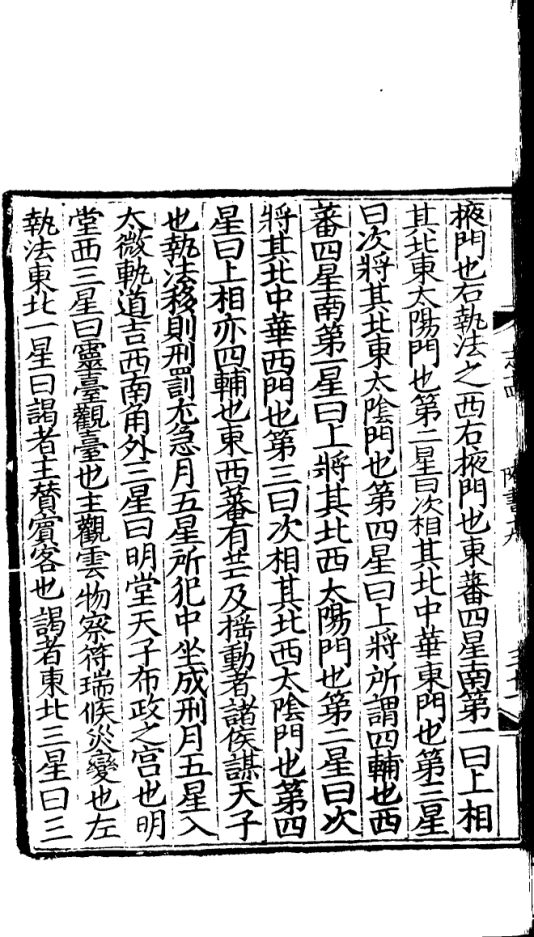 掖門也右執法之西右掖門也東蕃四星南第一曰上相
其北東太陽門也第二星曰次相其北中華東門也第三星
曰次將其北東太陰門也第四星曰上將所謂四輔也西
蕃四星南第一星曰上將其北西太陽門也第二星曰次
將其北中華西門也第三曰次相其北西太陰門也第四
星曰上相亦四輔也東西蕃有芒及揺動者諸侯謀天子
也執法移則刑罰尤急月五星所犯中坐成刑月五星入
太微軌道吉西南角外三星曰明堂天子布政之宫也明
堂西三星曰靈臺觀臺也主觀雲物察符瑞候災變也左
執法東北一星曰謁者主賛賓客也謁者東北三星曰三